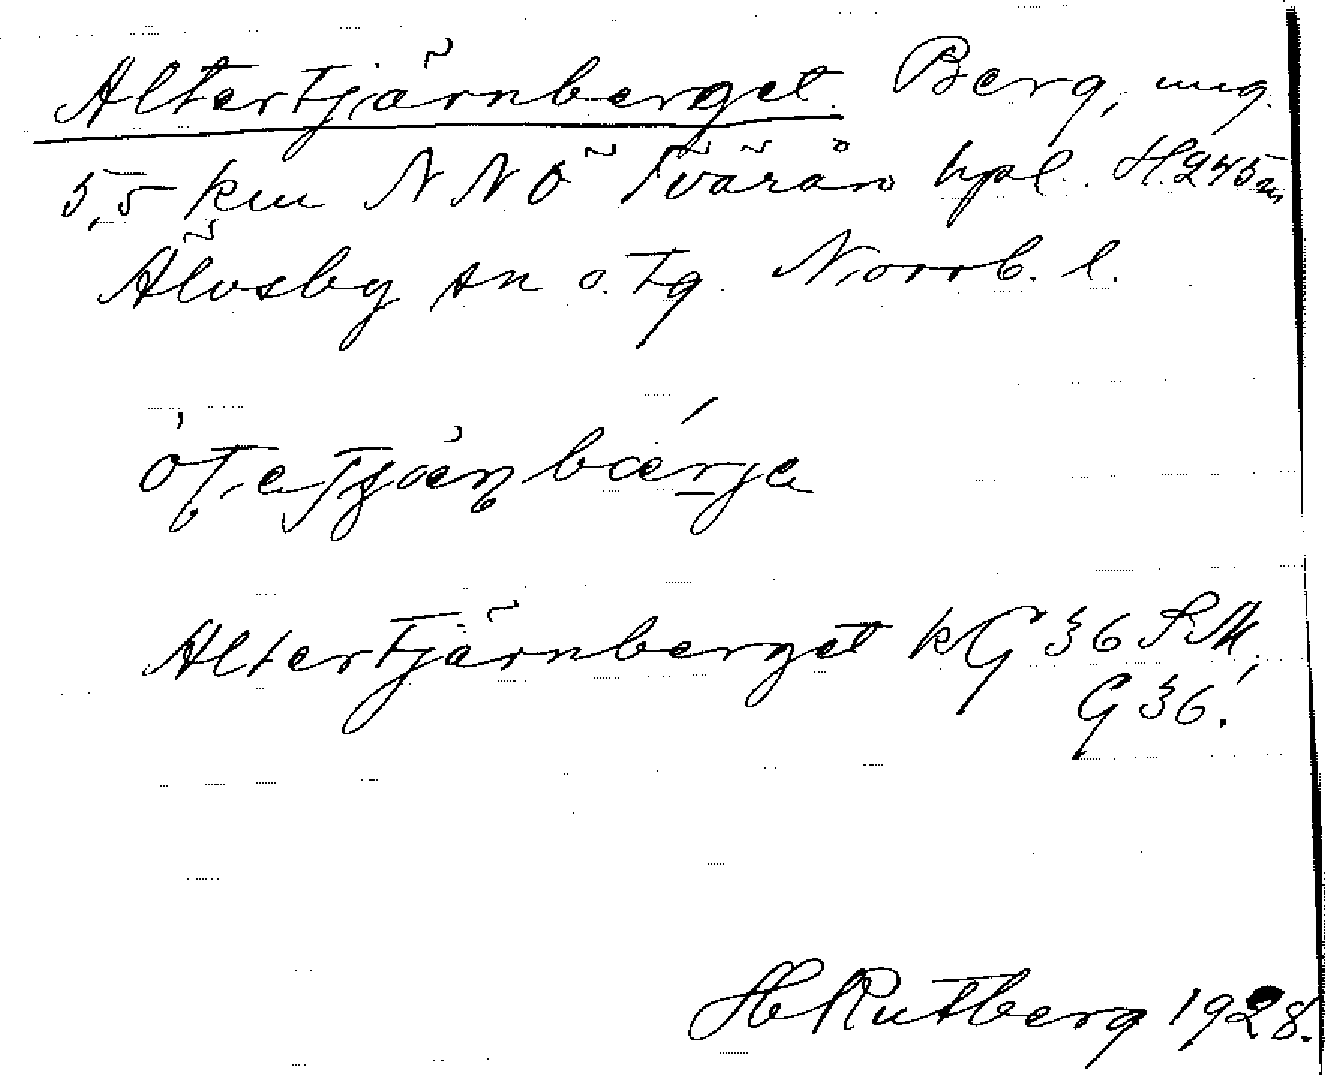 Altertjärnberget. Berg, ung.
5,5 km NNÖ Tvärån hpl. H. 245 m
Älvsby sn o. tg. Norrb. l.
Altertjärnberget kG 36 SKM,
G 36.
H Rutberg 1928.